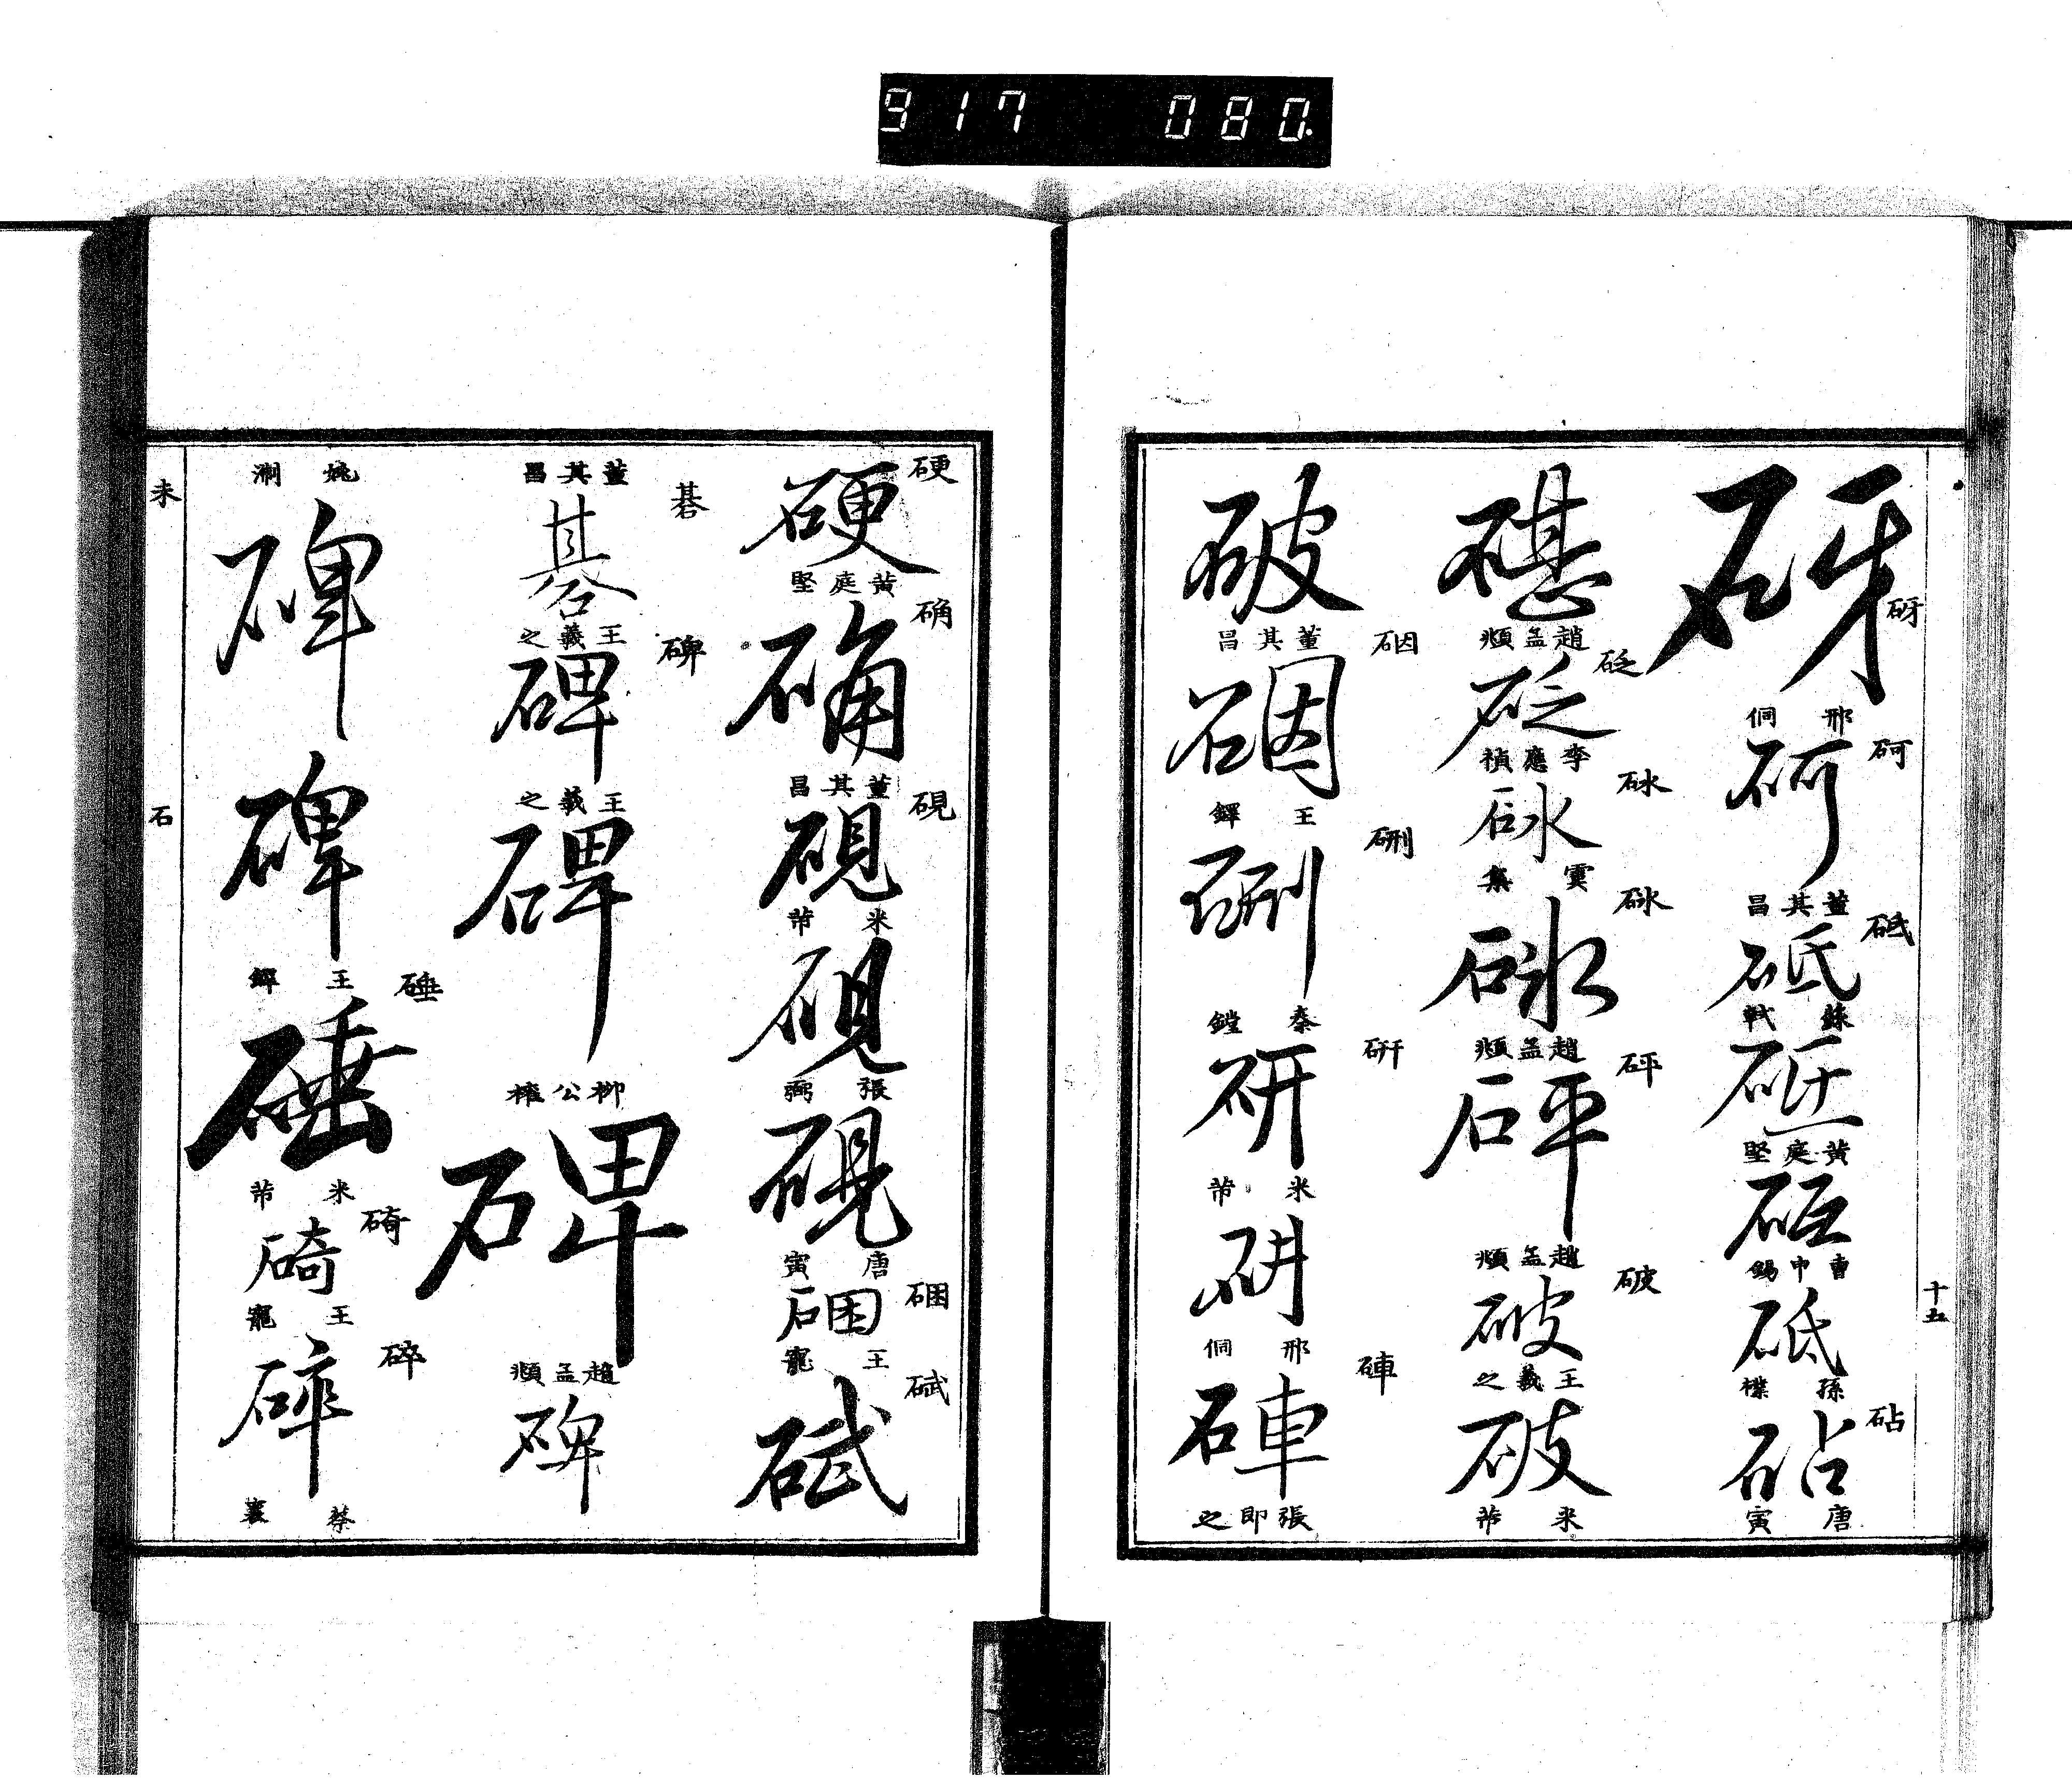 917 080.
十五
砑
砑
邢侗
砢
砢
董其昌
砥
砥
蘇軾
砥
黃庭堅
砥
唐寅
砧
砧
趙孟頫
砭
砭
李應禎
趙孟頫
砰
砰
趙孟頫
破
破
王羲之
破
米芾
破
董其昌
硱
王鐸
硎
硎
研
研
米芾
研
邢侗
硨
硨
張即之
硬
硬
黃庭堅
确
确
董其昌
硯
硯
米芾
硯
張弼
硯
唐寅
硱
硱
王寵
碔
碔
董其昌
碁
碁
王羲之
碑
碑
王羲之
碑
柳公權
碑
趙孟頫
碑
碑
碑
王鐸
硾
硾
米芾
碕
碕
王寵
碎
碎
蔡襄
石